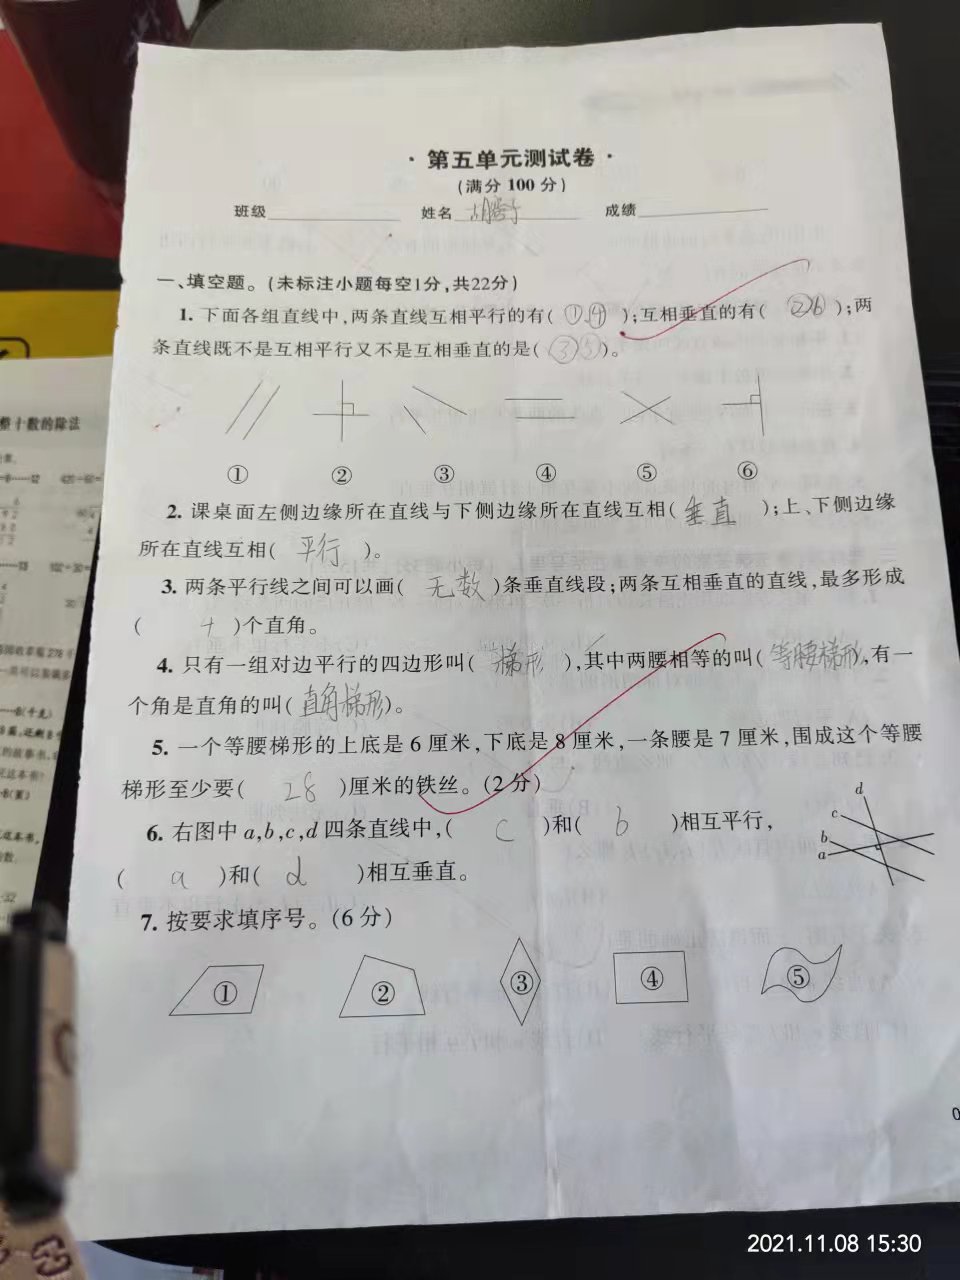 ·第五单元测试卷·
(满分100分)
班级 姓名 成绩
一、填空题。(未标注小题每空1分,共22分)
1. 下面各组直线中,两条直线互相平行的有( ①④ );互相垂直的有( ②⑥ );两
条直线既不是互相平行又不是互相垂直的是( ③⑤ )。
① ② ③ ④ ⑤ ⑥
2. 课桌面左侧边缘所在直线与下侧边缘所在直线互相( 垂直 );上、下侧边缘
所在直线互相( 平行 )。
3. 两条平行线之间可以画( 无数 )条垂直线段;两条互相垂直的直线,最多形成
( )个直角。
4. 只有一组对边平行的四边形叫( 梯形 ),其中两腰相等的叫( 等腰梯形 ,有一
个角是直角的叫( 直角梯形 )。
5. 一个等腰梯形的上底是6厘米,下底是8厘米,一条腰是7厘米,围成这个等腰
梯形至少要( 28 )厘米的铁丝。(2分)
6. 右图中a,b,c,d四条直线中,( c )和( b )相互平行,
( a )和( d )相互垂直。
d
c
b
a
7. 按要求填序号。(6分)
① ② ③ ④ ⑤
整十数的除法
2021.11.08 15:30